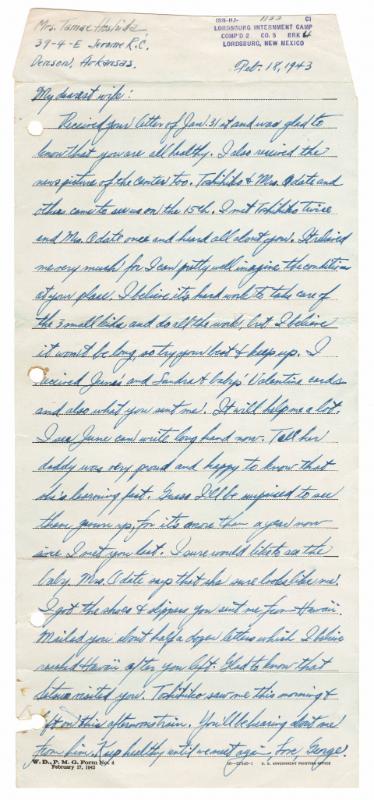 Mrs. Tamae Hoshida
39-4-E Jerome R.C.
Denson, Arkansas.
ISN-HJ- 1155 CI
LORDSBURG INTERNMENT CAMP
COMP'D 2 CO. 5 BRK 4
LORDSBURG, NEW MEXICO
Feb. 18, 1943
My dearest wife:
Received your letter of Jan. 31st and was glad to
know that you are all healthy. I also received the
news picture of the center too. Toshihiko & Mrs. Odate and
others came to see us on the 15th. I met Toshihiko twice
and Mrs. Odate once and heard all about you. It relieved
me very much for I can pretty well imagine the condition
at your place. I believe it's hard work to take care of
the 3 small kids and do all the work, but I believe
it won't be long, so try your best & keep up. I
received June's and Sandra & baby's Valentine cards
and also what you sent me. It will help me a lot.
I see June can write long hand now. Tell her
daddy was very proud and happy to know that
she's learning fast. Guess I'll be surprised to see
them grown up, for it's more than a year now
since I met you last. I sure would like to see the
baby. Mrs. Odate says that she sure looks like me.
I got the shoes & slippers you sent me from Hawaii.
Mailed you about half a dozen letters which I believe
reached Hawaii after you left. Glad to know that
visited you. Toshihiko saw me this morning &
left on this afternoon's train. You'll be hearing about me
from him. Keep healthy until we meet again. Love, George.
W. D., P. M. G. Form No. 4
February 17, 1942
U. S. GOVERNMENT PRINTING OFFICE